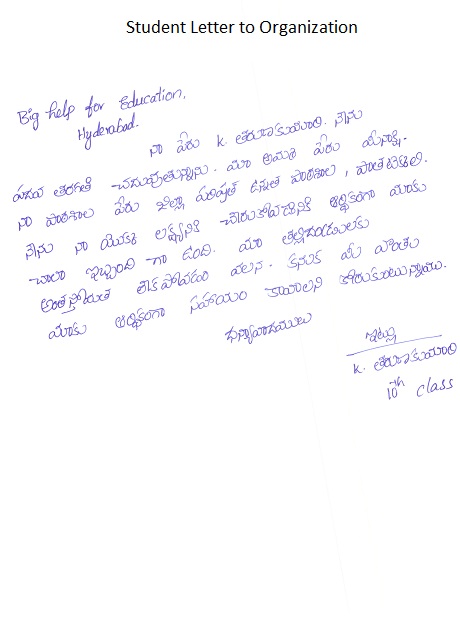 Student Letter to Organization
Big help for Education,
Hyderabad.
నా పేరు K. తరుణకుమారి. నేను
పదవ తరగతి చదువుతున్నాను. మా అమ్మ పేరు మీనాక్షి.
నా పాఠశాల పేరు జిల్లా పరిషత్ ఉన్నత పాఠశాల, పాతటెక్కలి.
నేను నా యొక్క లక్ష్యానికి చేరుకోవడానికి ఆర్థికంగా మాకు
చాలా ఇబ్బంది గా ఉంది. మా తల్లిదండ్రులకు
అంత స్తోమత లేకపోవడం వలన. కనుక మీ వంతు
మాకు ఆర్థికంగా సహాయం కావాలని కోరుకుంటున్నాము.
ధన్యవాదములు
ఇట్లు
K. తరుణకుమారి
10th class